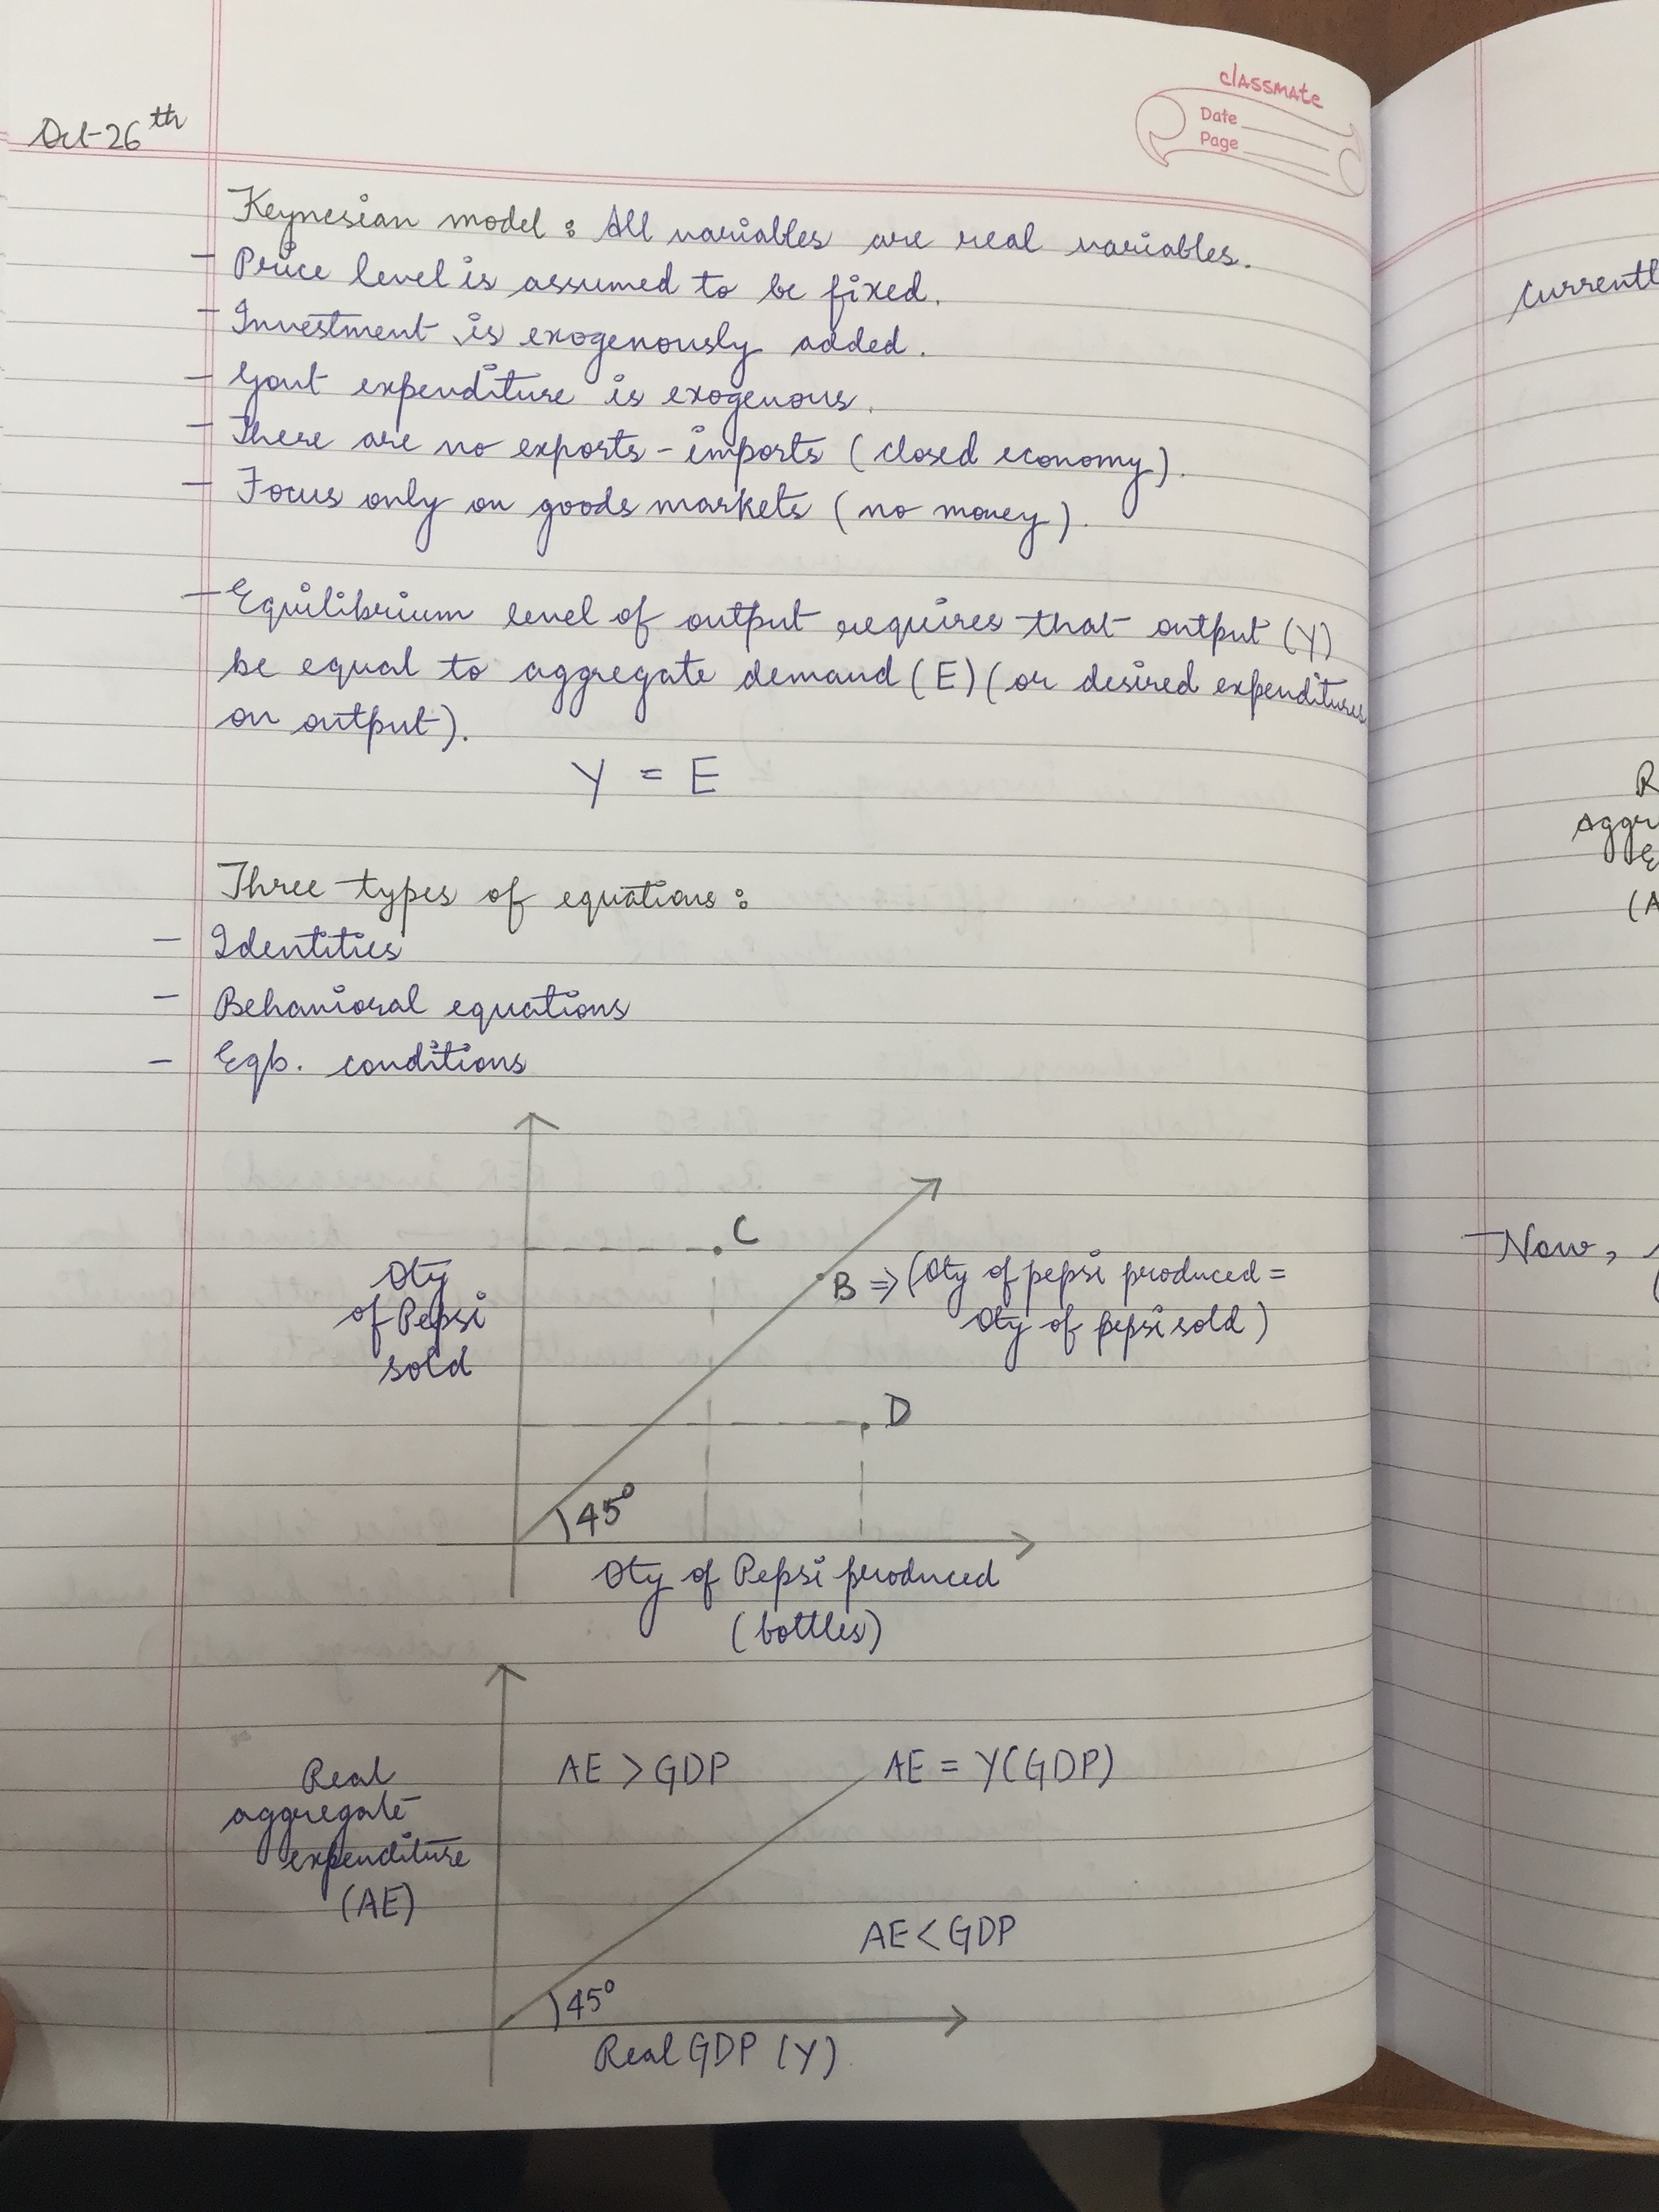 classmate
Date
Page
Oct-26th
Keynesian model : All variables are real variables.
- Price level is assumed to be fixed.
- Investment is exogenously added.
- Govt expenditure is exogenous.
- There are no exports - imports (closed economy).
- Focus only on goods markets (no money).
- Equilibrium level of output requires that output (Y)
be equal to aggregate demand (E) (or desired expenditures
on output).
Y = E
Three types of equations :
- Identities
- Behavioral equations
- Eqb. conditions
C
Qty
of Pepsi
sold
B => (Qty of pepsi produced =
Qty of pepsi sold)
D
45°
Qty of Pepsi produced
(bottles)
AE > GDP
AE = Y(GDP)
Real
aggregate
expenditure
(AE)
AE < GDP
45°
Real GDP (Y)
Currentl
R
Aggr
E
(A
- Now,